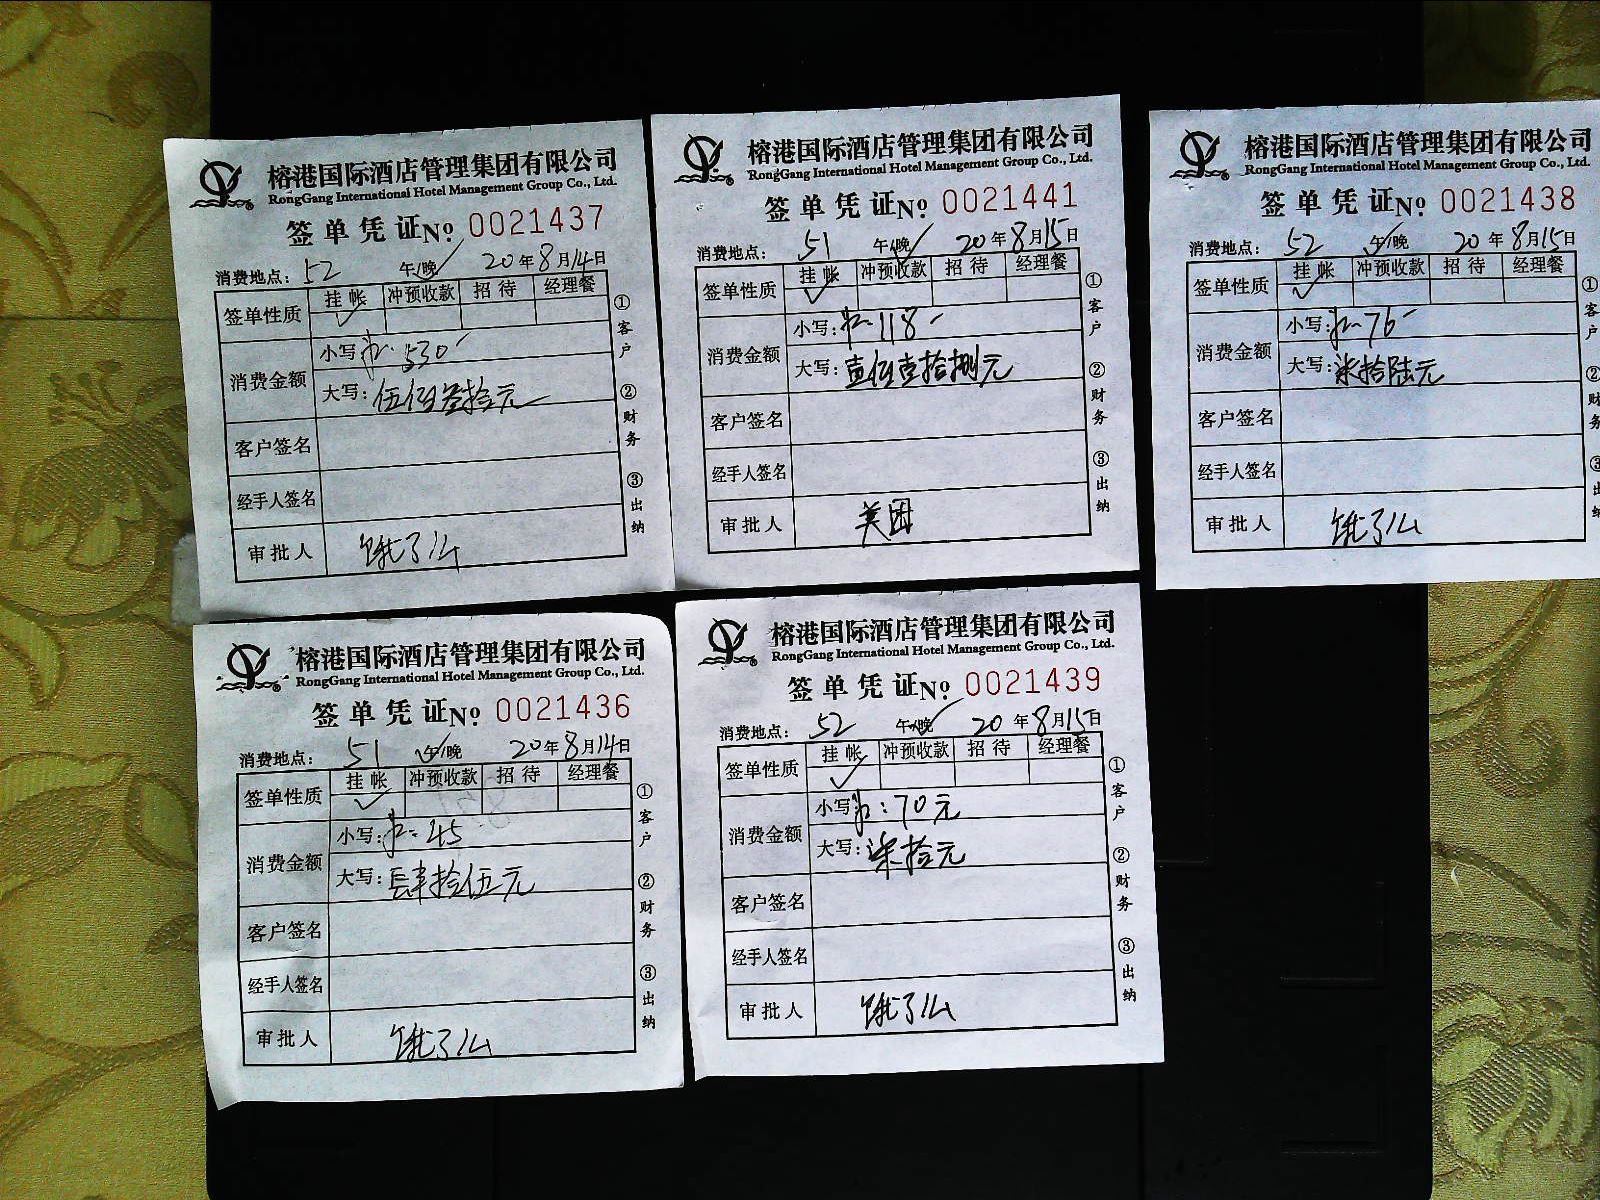 榕港国际酒店管理集团有限公司
RongGang International Hotel Management Group Co., Ltd.
签单凭证No. 0021437
消费地点: 52 午/晚 20年8月14日
签单性质 挂帐 冲预收款 招待 经理餐
消费金额
小写: 530
大写: 伍佰叁拾元
客户签名
经手人签名
审批人 饿了么
①客户 ②财务 ③出纳
榕港国际酒店管理集团有限公司
RongGang International Hotel Management Group Co., Ltd.
签单凭证No. 0021441
消费地点: 51 午/晚 20年8月15日
签单性质 挂帐 冲预收款 招待 经理餐
消费金额
小写: 118
大写: 壹佰壹拾捌元
客户签名
经手人签名
审批人 美团
①客户 ②财务 ③出纳
榕港国际酒店管理集团有限公司
RongGang International Hotel Management Group Co., Ltd.
签单凭证No. 0021438
消费地点: 52 午/晚 20年8月15日
签单性质 挂帐 冲预收款 招待 经理餐
消费金额
小写: 76
大写: 柒拾陆元
客户签名
经手人签名
审批人 饿了么
①客户 ②财务 ③出纳
榕港国际酒店管理集团有限公司
RongGang International Hotel Management Group Co., Ltd.
签单凭证No. 0021436
消费地点: 51 午/晚 20年8月14日
签单性质 挂帐 冲预收款 招待 经理餐
消费金额
小写: 45
大写: 肆拾伍元
客户签名
经手人签名
审批人 饿了么
①客户 ②财务 ③出纳
榕港国际酒店管理集团有限公司
RongGang International Hotel Management Group Co., Ltd.
签单凭证No. 0021439
消费地点: 52 午/晚 20年8月15日
签单性质 挂帐 冲预收款 招待 经理餐
消费金额
小写: 70元
大写: 柒拾元
客户签名
经手人签名
审批人 饿了么
①客户 ②财务 ③出纳